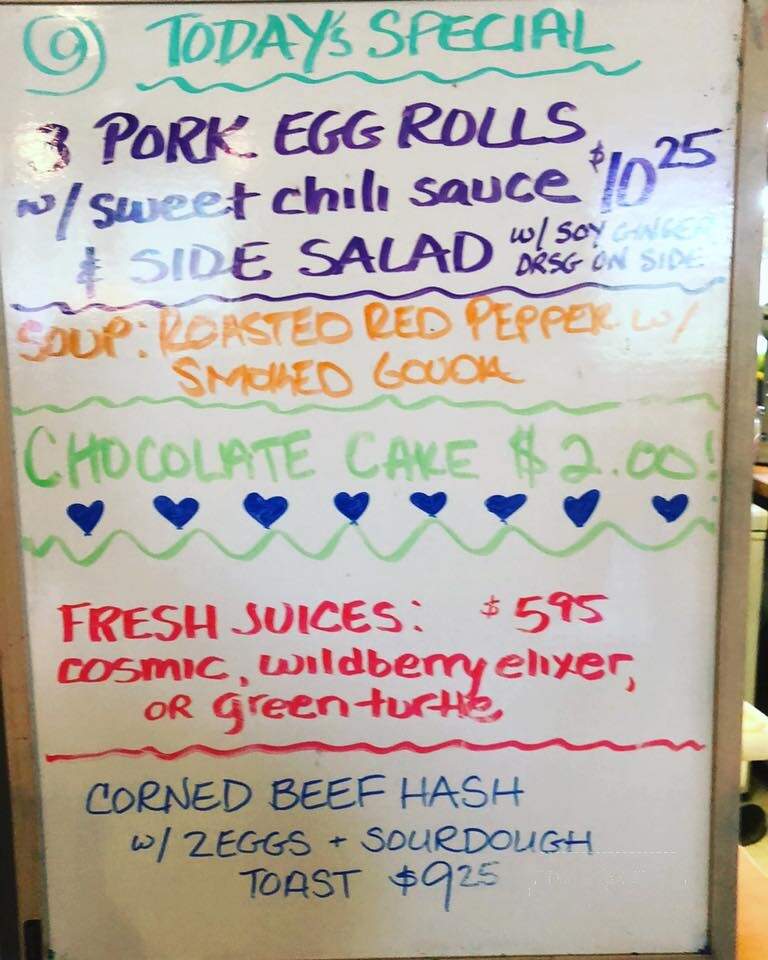 9 TODAY'S SPECIAL
3 PORK EGG ROLLS
w/ sweet chili sauce $10 25
& SIDE SALAD w/ SOY GINGER
DRSG ON SIDE
SOUP: ROASTED RED PEPPER w/
SMOKED GOUDA
CHOCOLATE CAKE $2.00!
FRESH JUICES: $595
cosmic, wildberry elixer,
OR green turtle
CORNED BEEF HASH
w/ 2EGGS + SOURDOUGH
TOAST $925